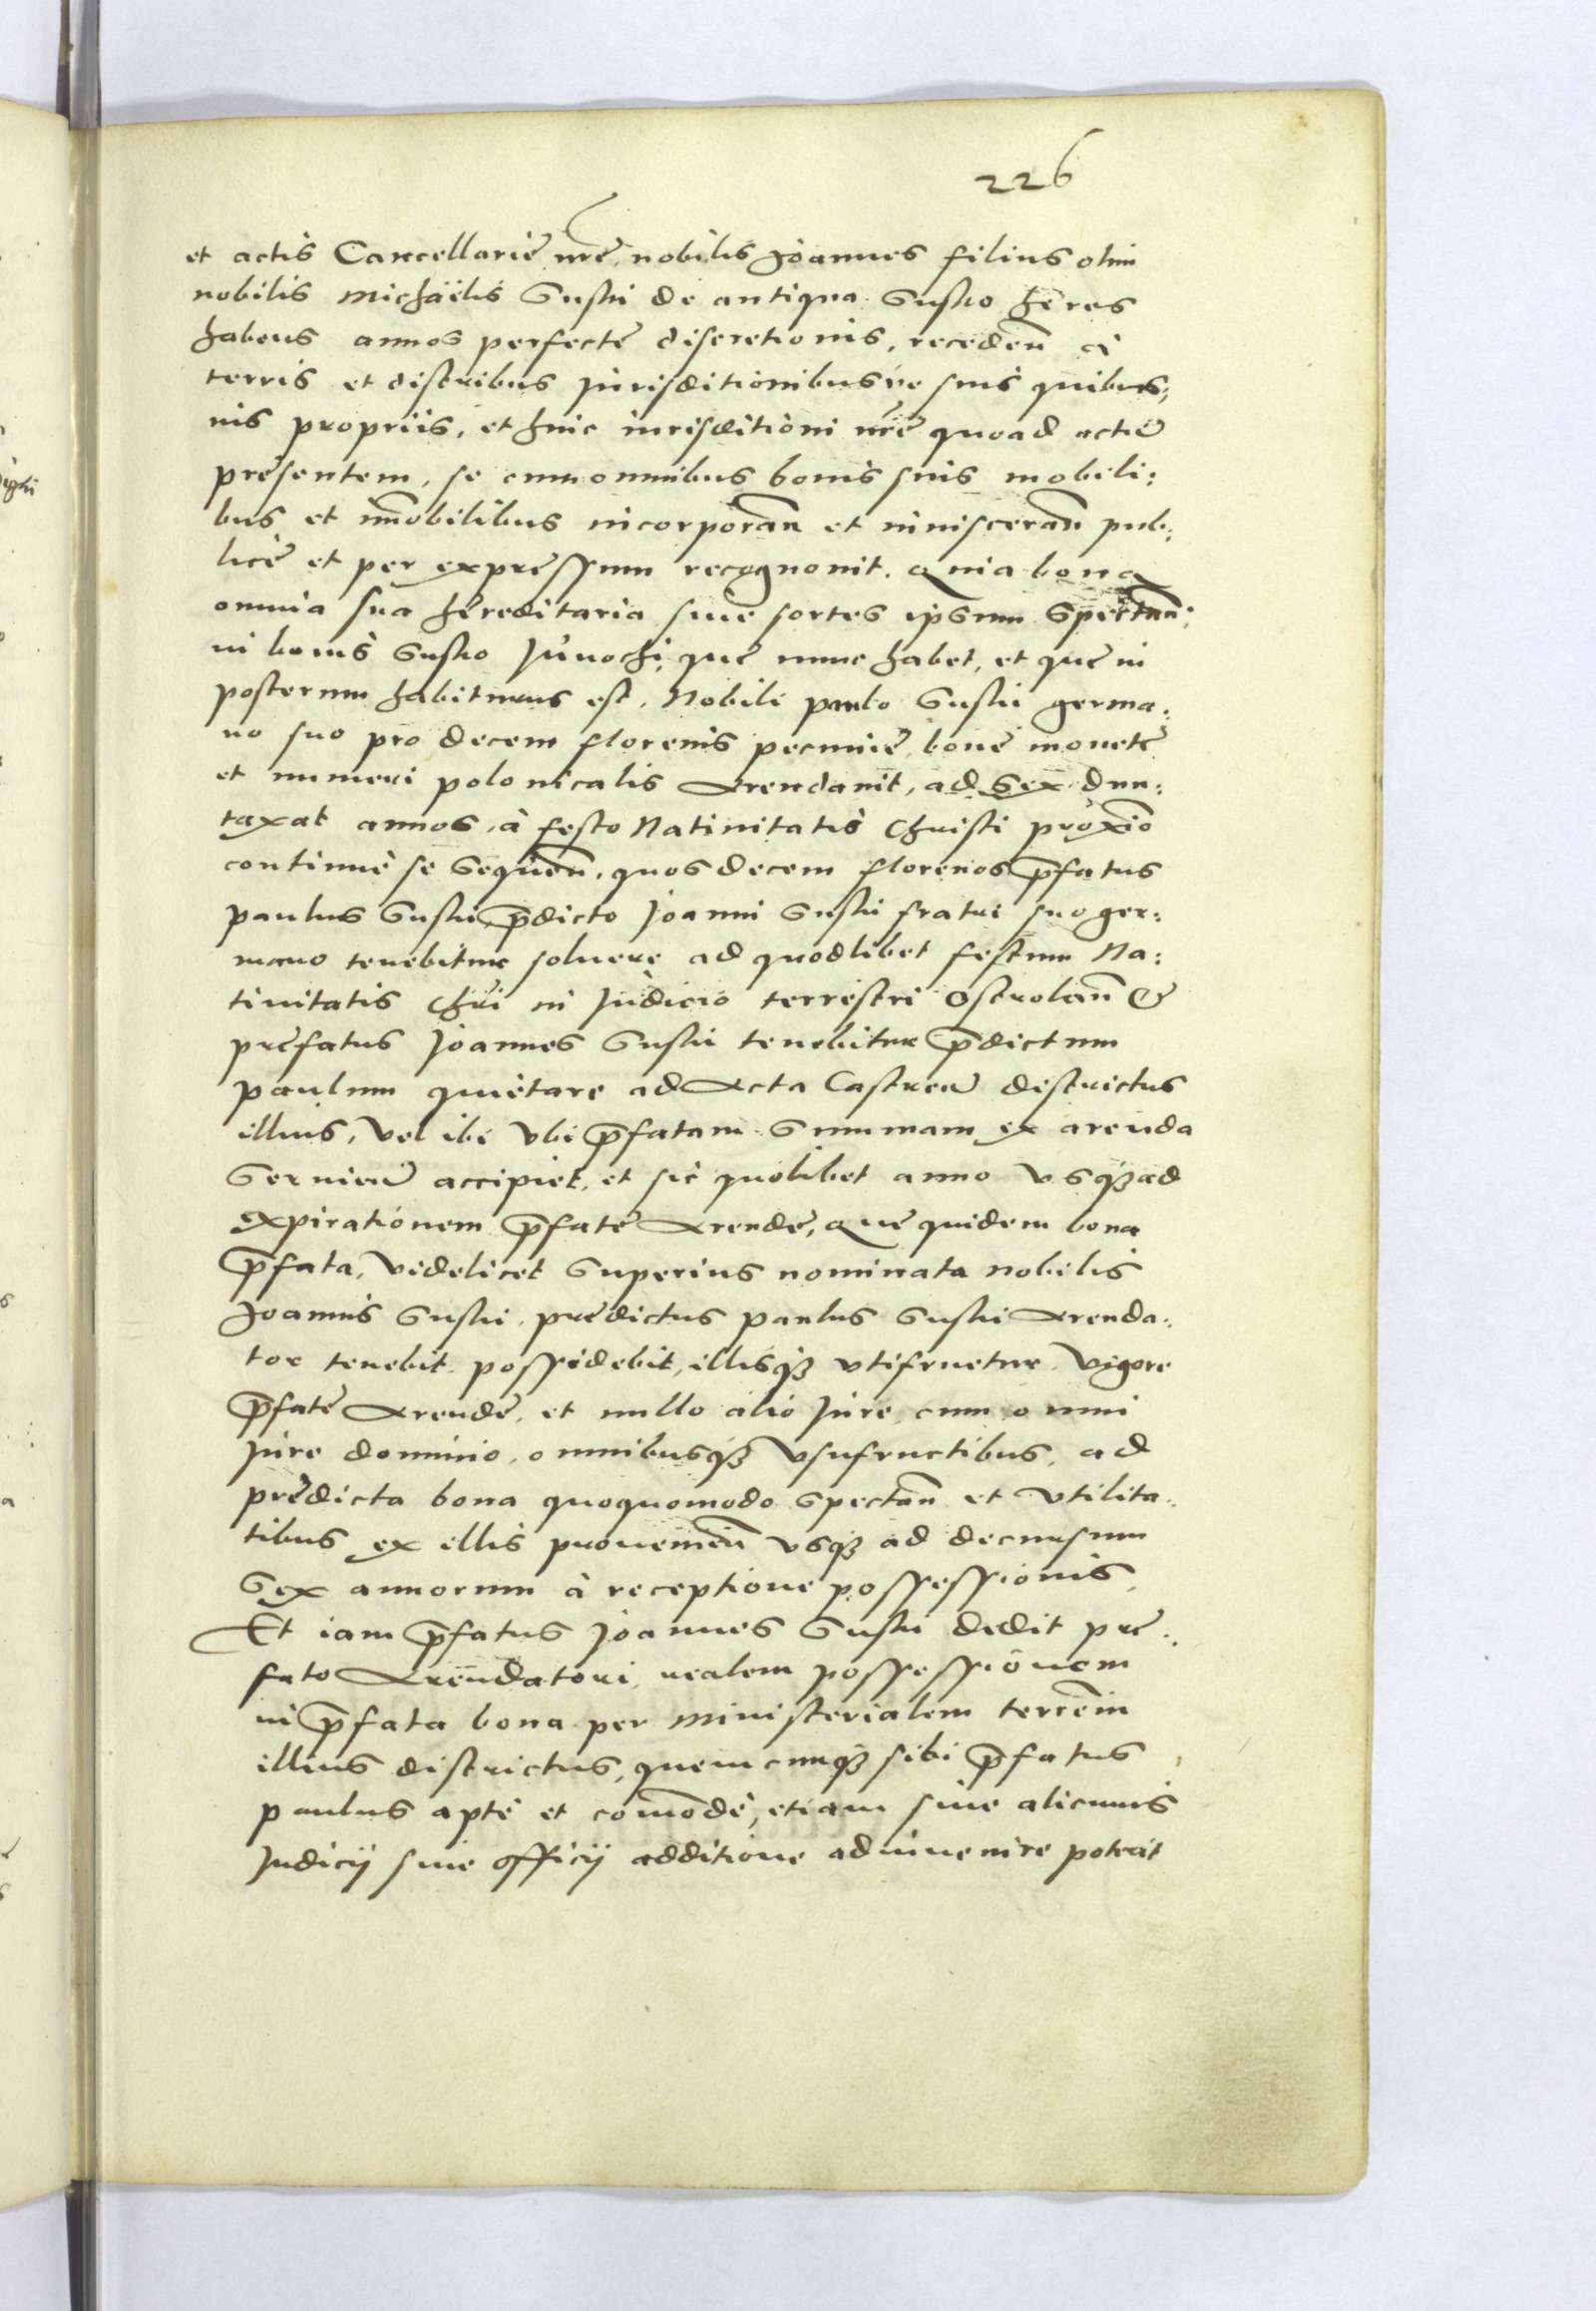 226
et actis Cancellarię nrę, nobilis Joannes filius olim
nobilis Michaëlis Gustii de antiqua Gustio hęres
habens annos perfectę discretionis, receden̄ à
terris et districtibus Jurisditionibusue suis quibus,
uis propriis, et huic iurisditioni nrę quoad actū
pręsentem, se cum omnibus bonis suis mobili:
bus et im̄obilibus incorporan̄ et inuisceran̄ pub:
licè et per expressum recognouit. Quia bona
omnia sua hęreditaria siue sortes ipsum spectan̄:
in bonis Gustio Junochi, quę nunc habet, et quę in
posterum habiturus est, Nobili paulo Gustii germa:
no suo pro decem florenis pecunię, bonę monetę
et numeri polonicalis Arendauit, ad sex dun:
taxat annos, à festo Natiuitatis Christi proxīo
continuè se sequen̄, quos decem florenos p̄fatus
paulus Gustii p̄dicto Joanni Gustii fratri suo ger:
mano tenebitur soluere ad quodlibet festum Na:
tiuitatis Chri in Judicio terrestri Ostrolen̄ &
pręfatus Joannes Gustii tenebitur p̄dictum
paulum quietare ad Acta Castren̄ districtus
illius, Vel ibi Vbi p̄fatam summam ex arenda
ueniēn accipiet, et sic quolibet anno vsqȝ ad
expirationem p̄fatę Arendę, Quę quidem bona
p̄fata, Videlicet superius nominata nobilis
Joannis Gustii, prędictus paulus Gustii Arenda:
tor tenebit possidebit, illisqȝ vtifruetur Vigore
p̄fatę Arendę, et nullo alio Jure, cum omni
Jure dominio, omnibusqȝ Vsufructibus, ad
prędicta bona quoquomodo spectan̄ et Vtilita:
tibus ex illis prouenien̄ vsqȝ ad decursum
sex annorum à receptione possessionis,
Et iam p̄fatus Joannes Gustii dedit prę:
fato Arendatori realem possessionem
in p̄fata bona per Ministerialem terrēm
illius districtus, quemcumqȝ sibi p̄fatus
paulus aptè et com̄odè, etiam sine alicuius
Judicij siue officij additione adinuenire poterit